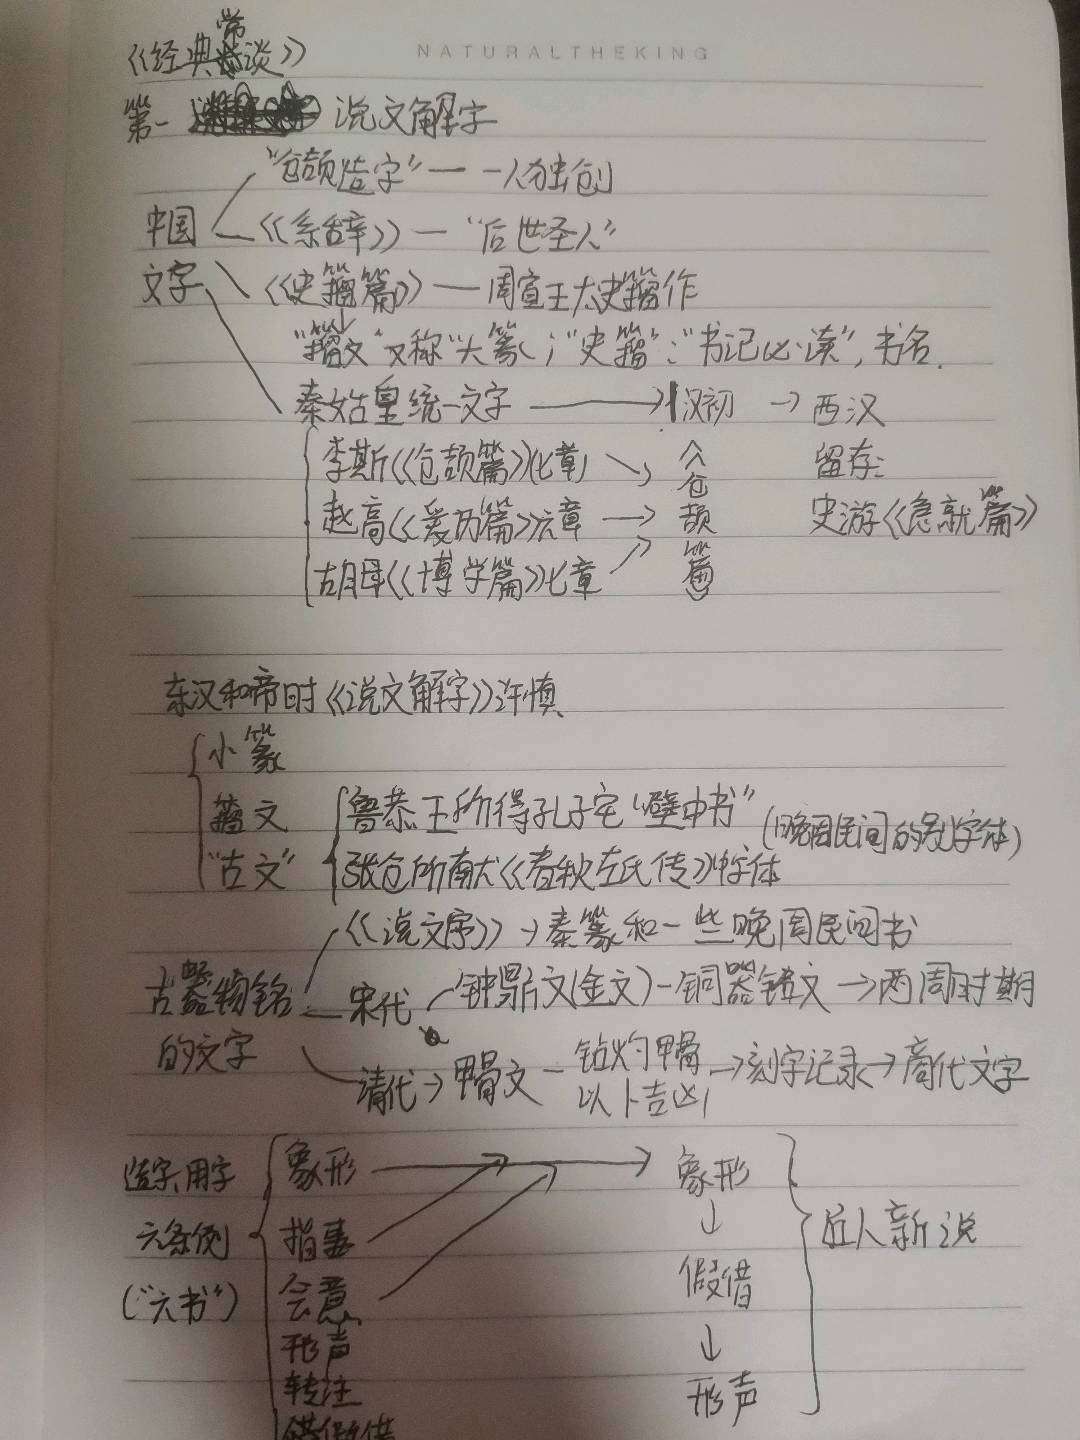 NATURALTHEKING
《经典常谈》
第一 说文解字
"仓颉造字"— 一人独创
中国 《系辞》—"后世圣人"
文字 《史籀篇》—周宣王太史籀作
"籀文"又称"大篆";"史籀":"书记必读",书名.
秦始皇统一文字 → 汉初 → 西汉
李斯《仓颉篇》七章 留存:
赵高《爰历篇》六章 → 《仓颉篇》 史游《急就篇》
胡母《博学篇》七章
东汉和帝时《说文解字》许慎
小篆
籀文 鲁恭王所得孔子宅"壁中书"(晚周民间的别字体)
"古文" 张仓所献《春秋左氏传》中字体
《说文序》→秦篆和一些晚周民间书
古器物铭 宋代 钟鼎文(金文)-铜器铸文→两周时期
的文字 清代→甲骨文—钻灼甲骨以卜吉凶→刻字记录→商代文字
造字、用字 象形 → 象形
六条例 指事 ↓ 后人新说
("六书") 会意 假借
形声 ↓
转注 形声
假借